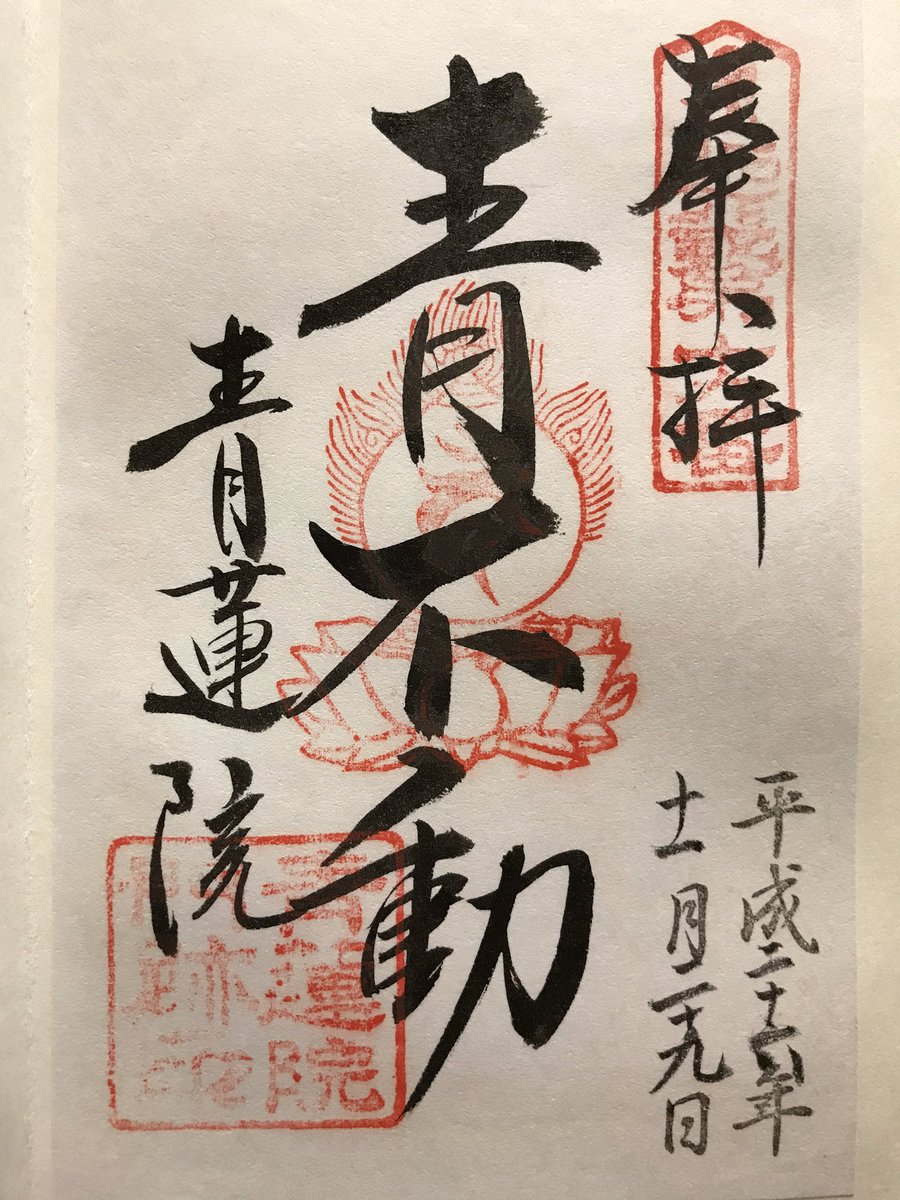 奉拝
平成二十六年
十一月二十九日
青不動
青蓮院
青蓮院